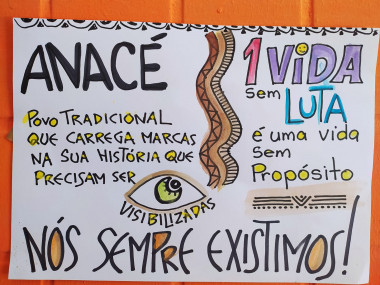 ANACÉ
POVO TRADICIONAL
QUE CARREGA MARCAS
NA SUA HISTÓRIA QUE
PRECISAM SER
VISIBILIZADAS
1 VIDA
sem
LUTA
é uma vida
sem
Propósito
NÓS SEMPRE EXISTIMOS!